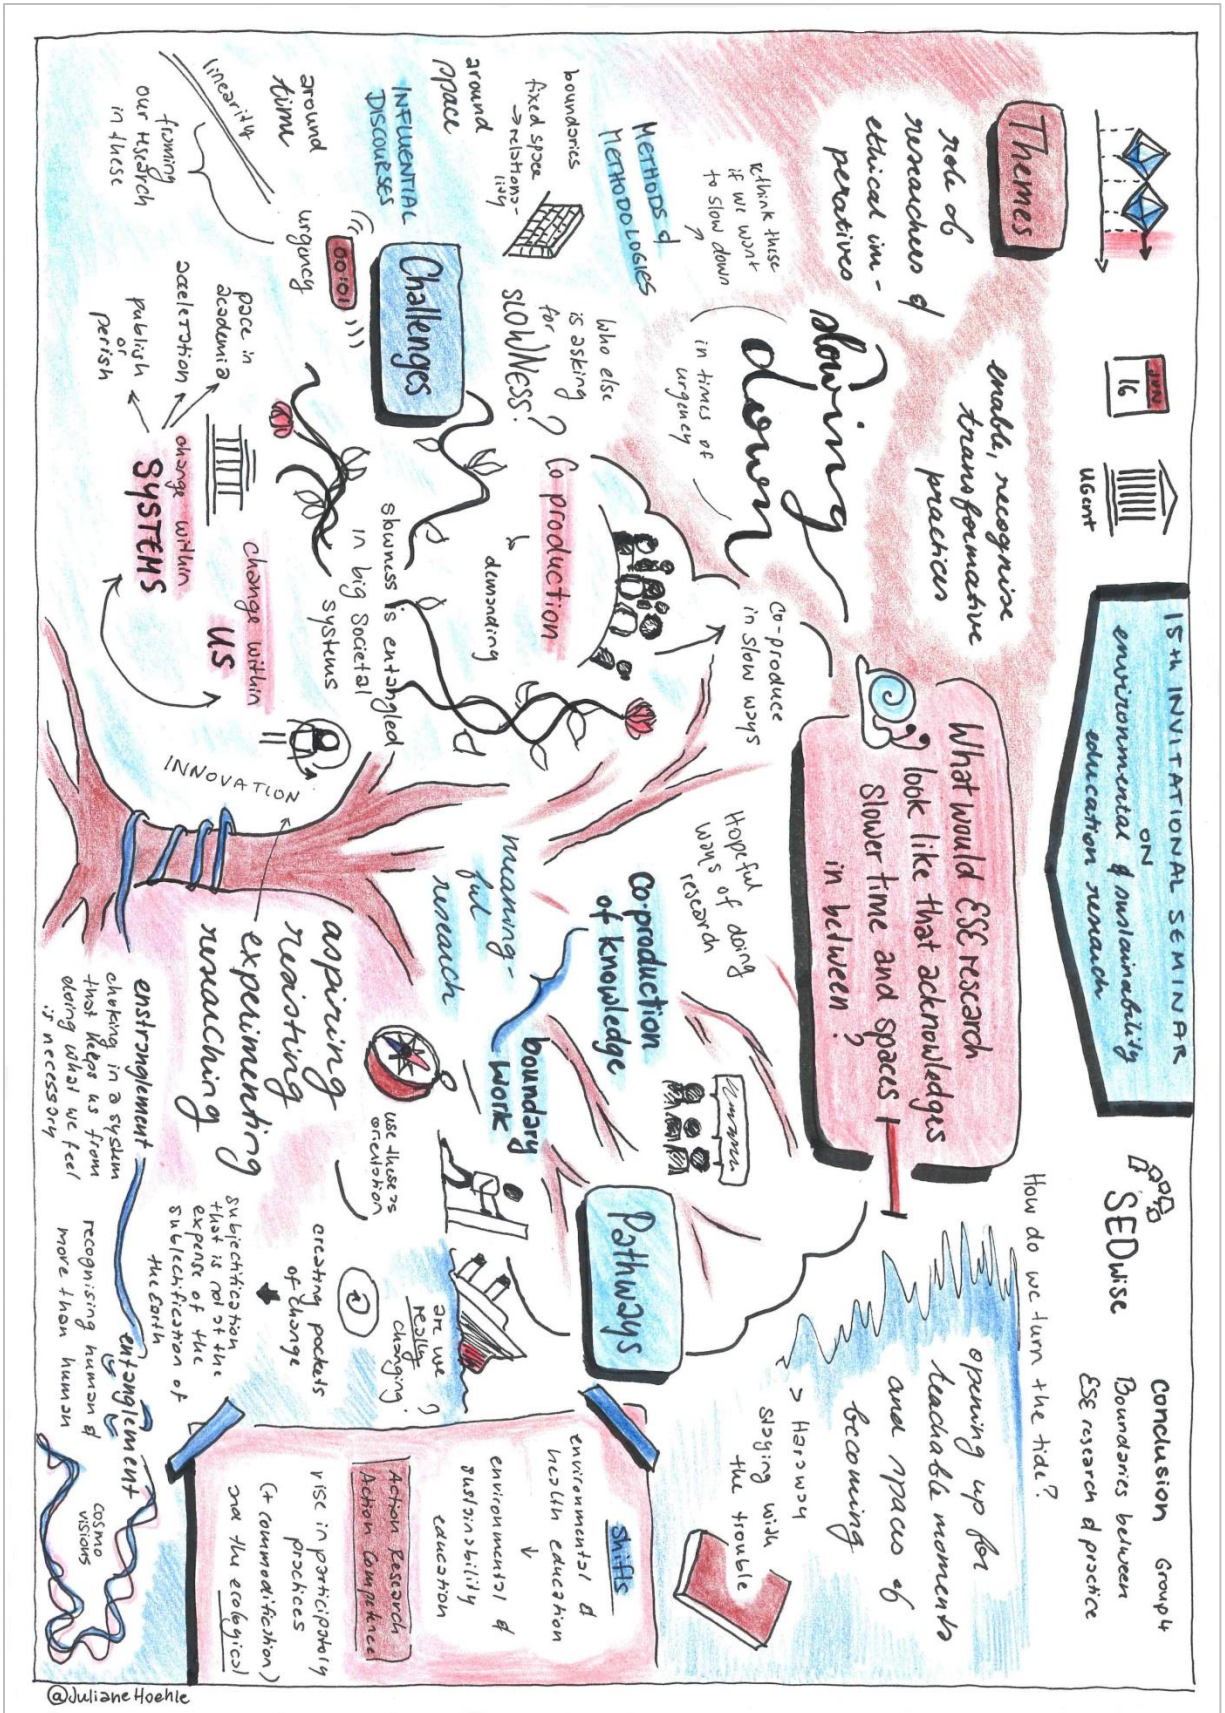 JUN
16
UGent
15th INVITATIONAL SEMINAR
ON
environmental & sustainability
education research
SEDwise
Conclusion Group 4
Boundaries between
ESE research & practice
Themes
role of
researchers &
ethical im-
peratives
enable, recognise
transformative
practices
slowing
down
in times of
urgency
What would ESE research
look like that acknowledges
slower time and spaces
in between?
How do we turn the tide?
opening up for
teachable moments
and spaces of
becoming
> Haraway
staying with
the trouble
METHODS &
METHODOLOGIES
rethink these
if we want
to slow down
boundaries
fixed space
→ relationa-
lity
around
space
INFLUENTIAL
DISCOURSES
around
time
linearity
urgency
framing
our research
in these
00:01
Challenges
who else
is asking
for
SLOWNESS?
Co production
↳ demanding
co-produce
in slow ways
slowness is entangled
in big societal
systems
pace in
academia
acceleration
publish
or
perish
change within
SYSTEMS
change within
us
INNOVATION
Hopeful
ways of doing
research
co-production
of knowledge
meaning-
ful
research
boundary
work
Pathways
aspiring
resisting
experimenting
researching
use these as
orientation
are we
really
changing?
creating pockets
of change
subjectification
that is not at the
expense of the
sublectification of
the Earth
enstranglement
choking in a system
that keeps us from
doing what we feel
is necessary
entanglement
recognising human &
more than human
cosmo
visions
shifts
environmental &
health education
↓
environmental &
sustainability
education
Action Research
Action Competence
rise in participatory
practices
(+ commodification)
and the ecological
@JulianeHoehle